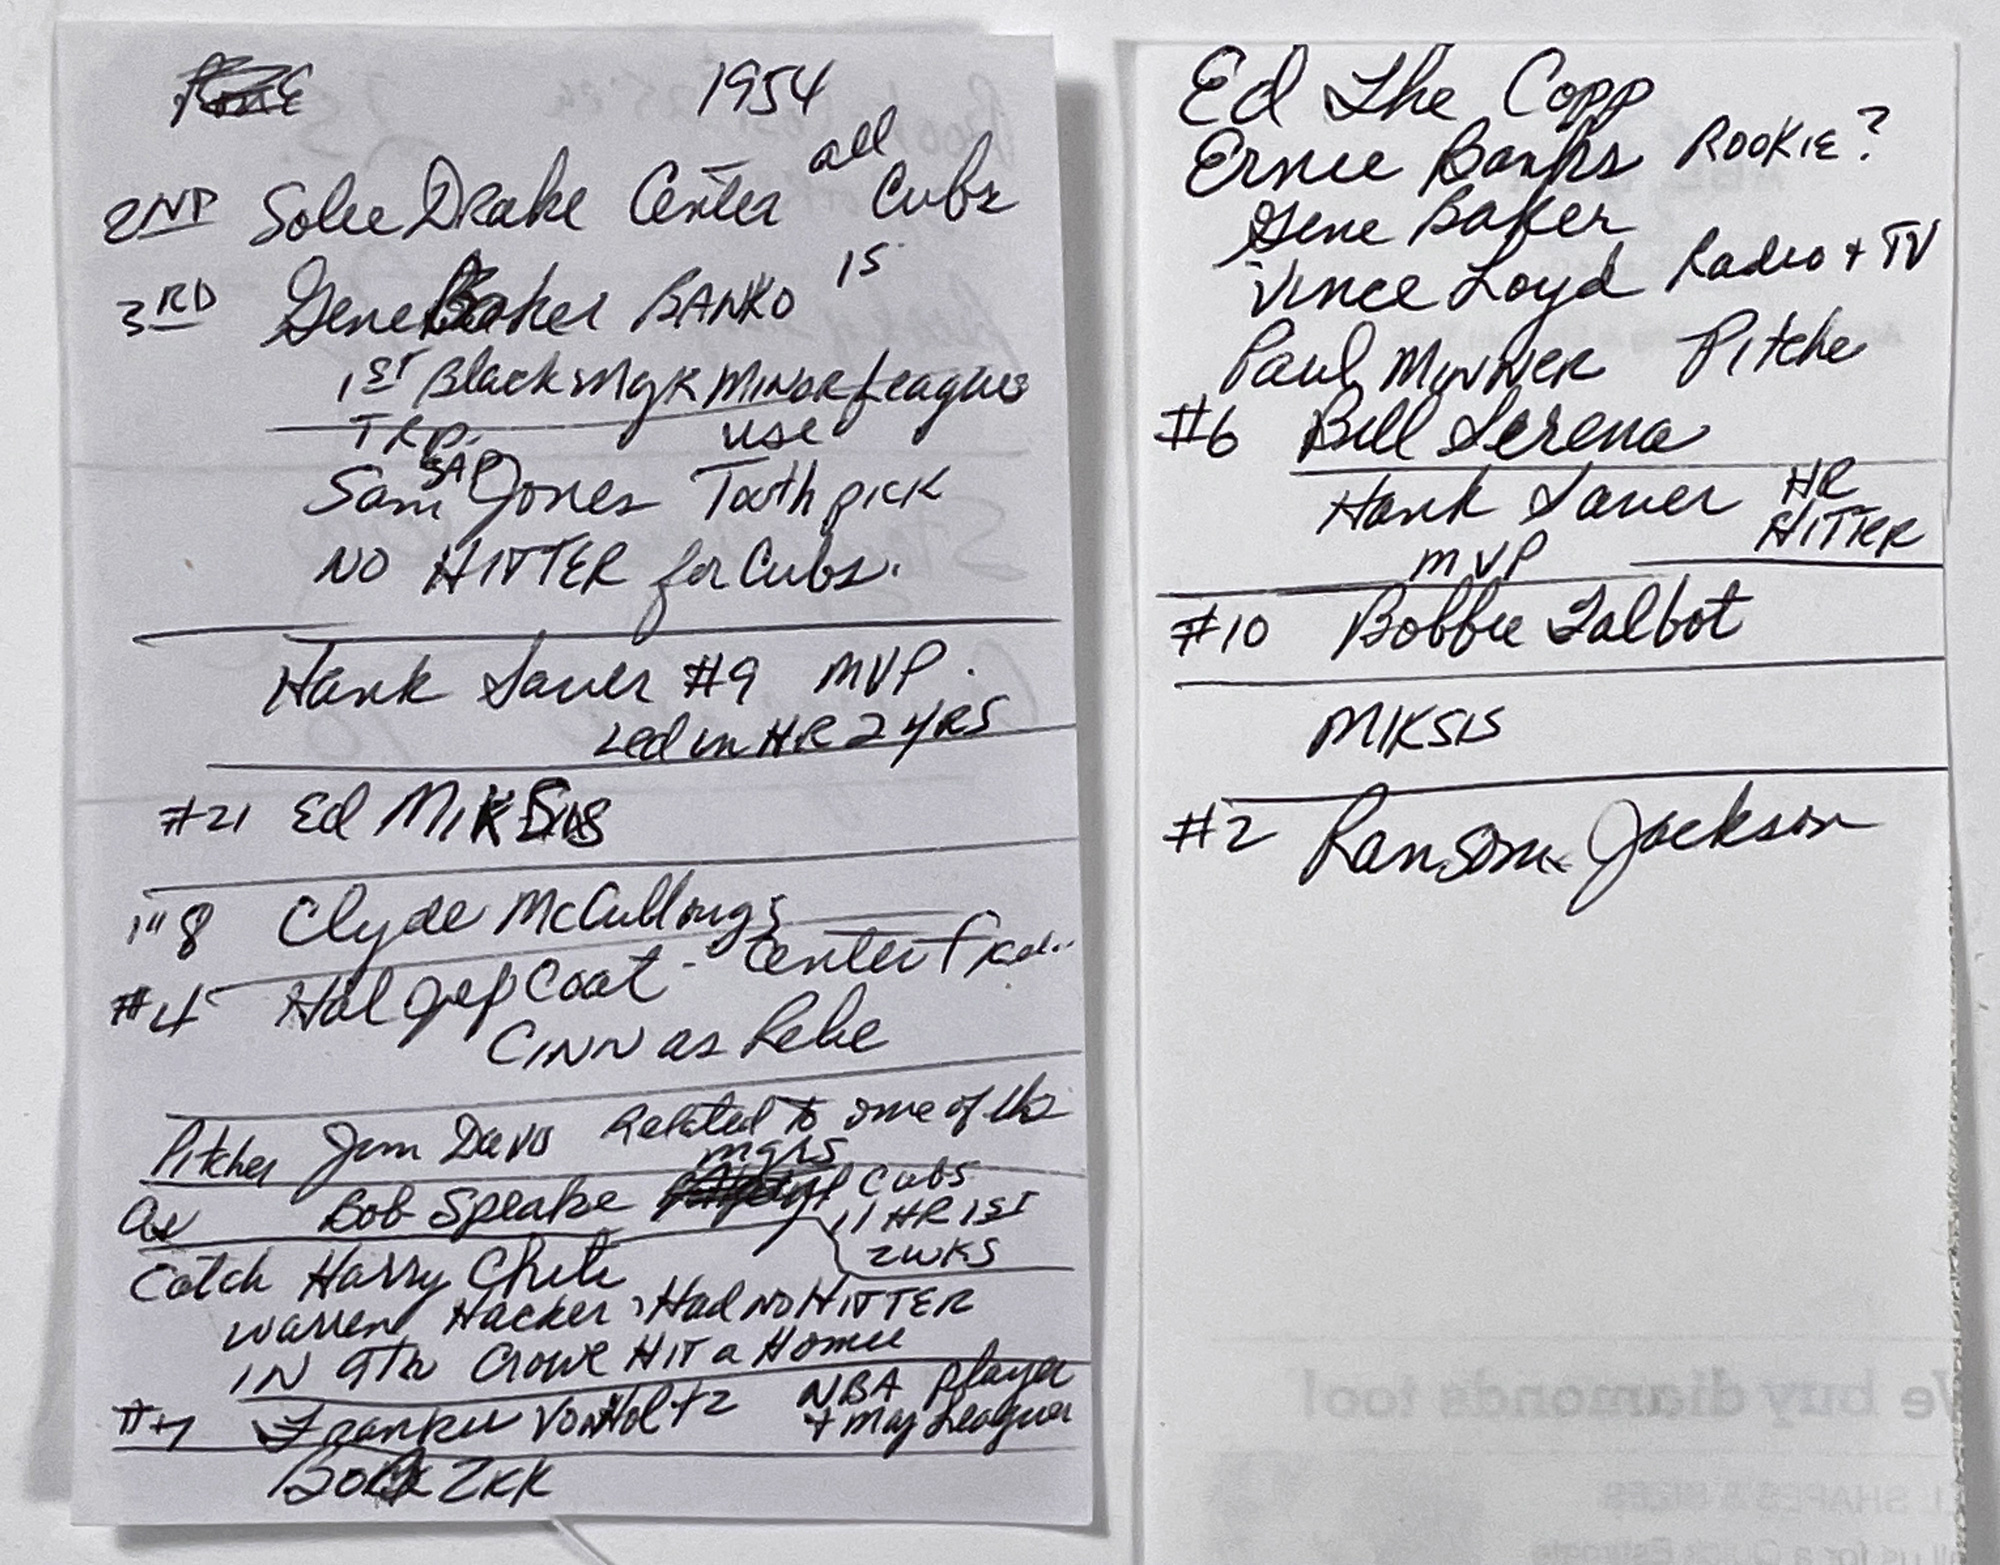 1954
all
2ND Solee Drake Center Cubs
3RD Gene Baker BANKO 15
1ST Black Mgr MINOR Leagues
TRP. use
SAD
Sam Jones Toothpick
NO HITTER for Cubs.
Hank Sauer #9 MVP.
Led in HR 2 YRS
#21 Ed MIKSIS
8 Clyde McCullough
#4 Hal Jep Coat - Center
CINN as
Pitcher Jim Davis Related to one of the
mgrs
Bob Speake Cubs
11 HR 1ST
2 WKS
Catch Harry Chiti
Warren Hacker, Had NO HITTER
IN 9th Crowe HIT a Homer
NBA player
#7 Frankie VonHoltz + Maj Leaguer
Ed The Copp
Ernie Banks ROOKIE?
Gene Baker
Vince Loyd Radio + TV
Paul MINNER Pitcher
#6 Bill Serena
Hank Sauer HR
HITTER
MVP
#10 Bobbie Talbot
MIKSIS
#2 Ransom Jackson
We buy diamonds too!
ALL SHAPES & SIZES
Call us for a Quick Estimate